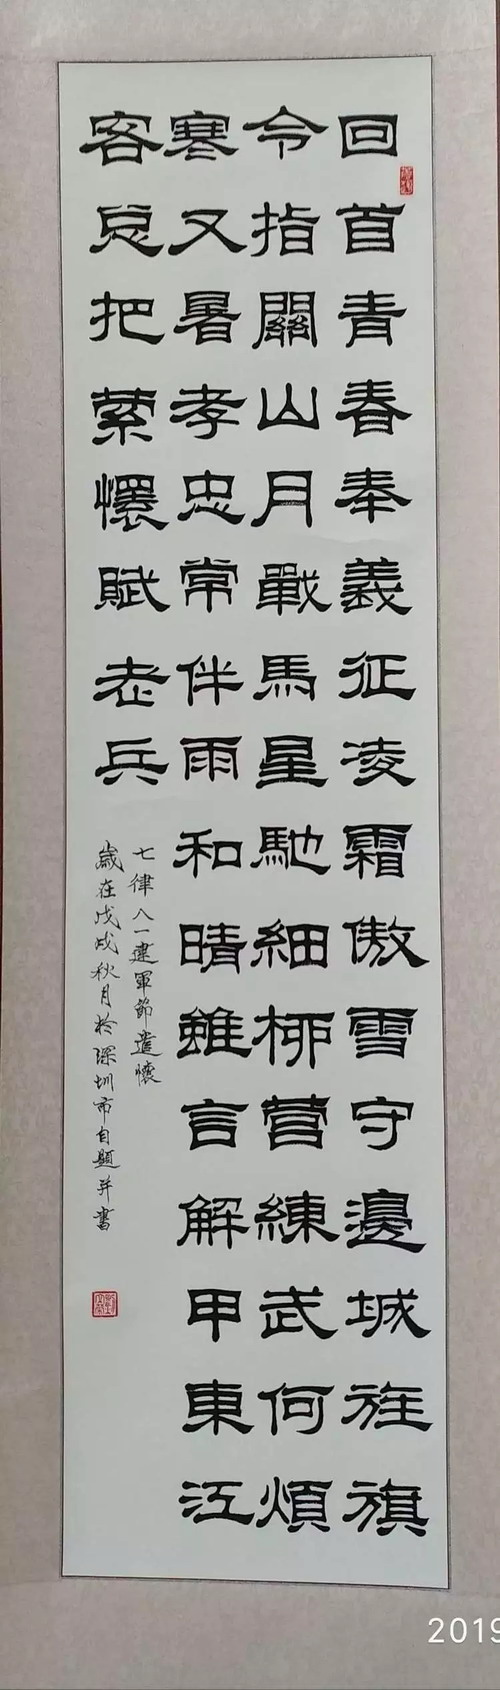 回首青春奉義征凌霜傲雪守邊城旌旗
令指關山月戰馬星馳細柳營練武何煩
寒又暑孝忠常伴雨和晴雖言解甲東江
客總把縈懷賦老兵
七律八一建軍節遣懷
歲在戊戌秋月於深圳市自題并書
2019